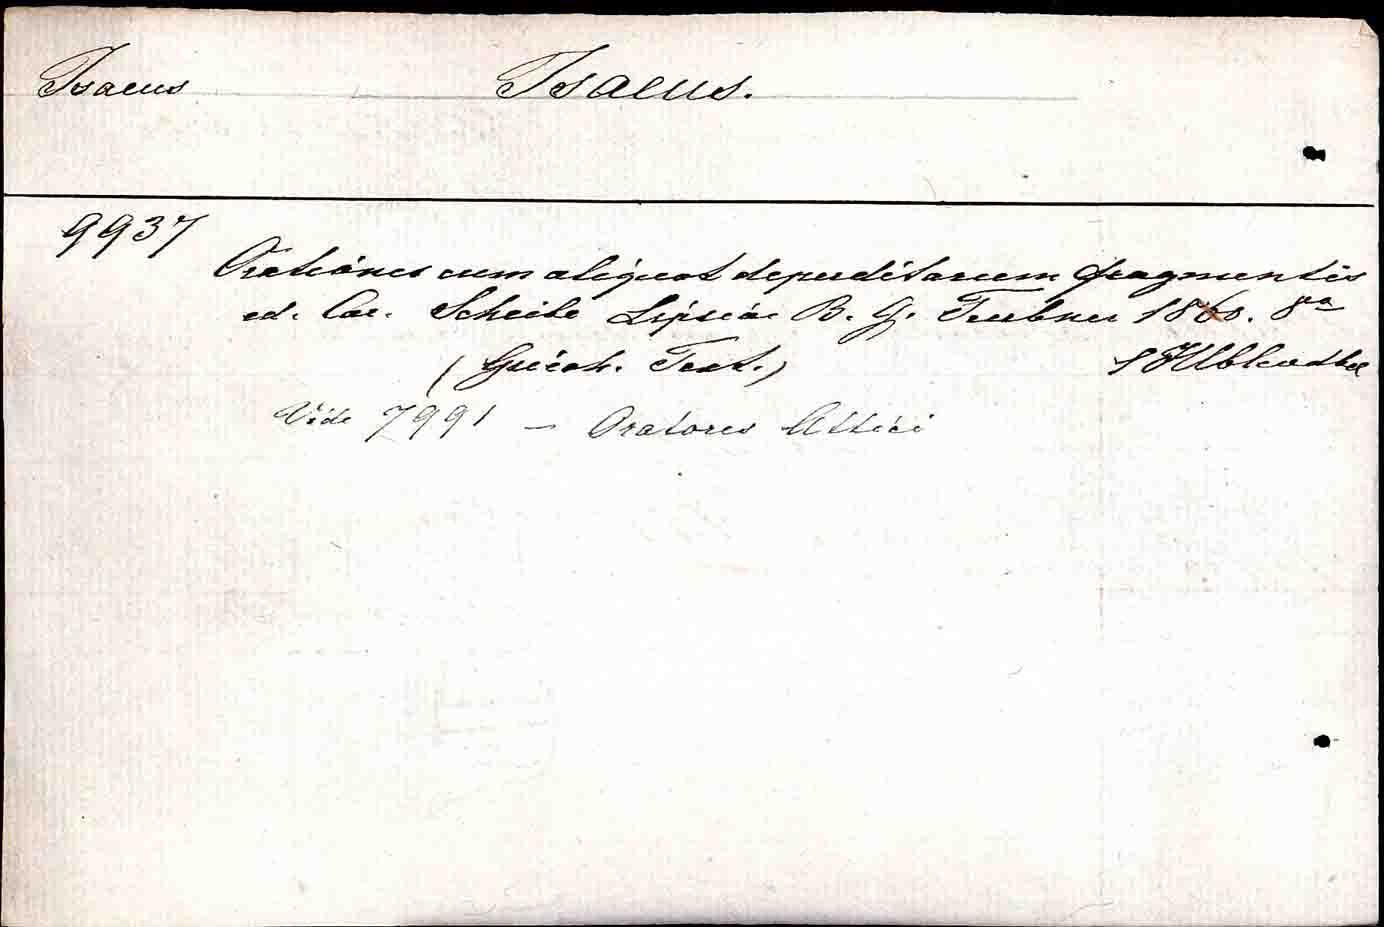 Isaeus Isaeus.
9937
Orationes cum aliquot deperditarum fragmentis
ed. Car. Scheibe Lipsiae B. G. Teubner 1860. 8va
(Griech. Text.)
Vide 7991 — Oratores Attici